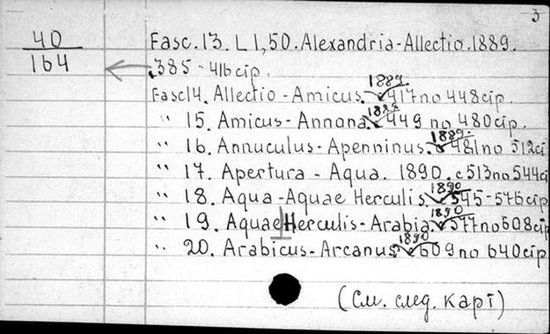 3
40
164
Fasc. 13. L 1,50. Alexandria-Allectio. 1889.
385-416 сір.
Fasc 14. Allectio-Amicus. 1889. 417 по 448 сір.
" 15. Amicus-Annona. 1889 449 по 480 сір.
" 16. Annuculus-Apenninus. 1889. с 481 по 512 сі
" 17. Apertura-Aqua. 1890. с 513 по 544 сі
" 18. Aqua-Aquae Herculis 1890 545-576 сір
" 19. Aquae Herculis-Arabia. 1890 577 по 608 сір
" 20. Arabicus-Arcanus. 1890 с 609 по 640 сір.
(См. след. карт)